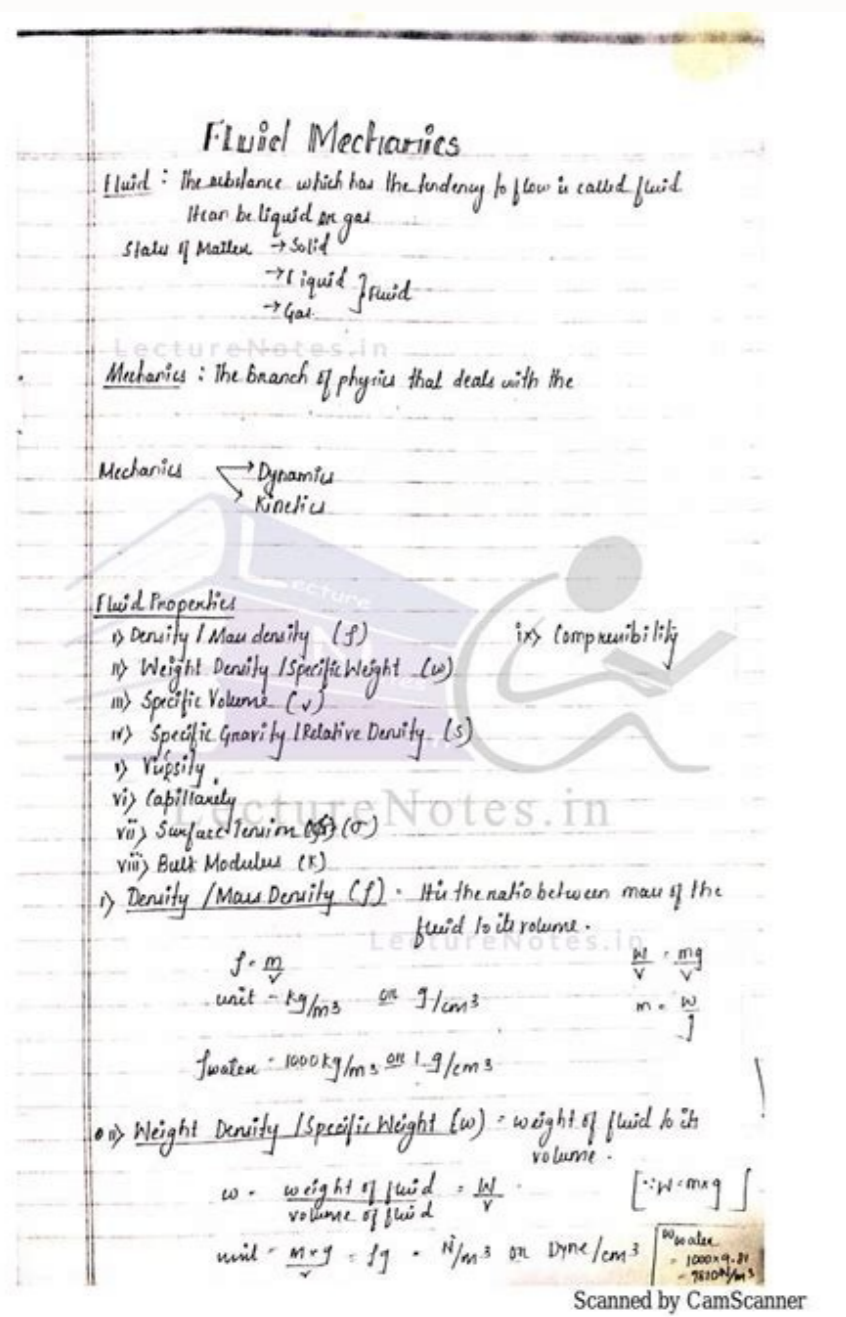 Fluid Mechanics
Fluid : The substance which has the tendency to flow is called fluid
It can be liquid or gas
States of Matter → Solid
→ Liquid } Fluid
→ Gas
LectureNotes.in
Mechanics : The branch of physics that deals with the
Mechanics → Dynamics
→ Kinetics
Lecture
Fluid Properties
i> Density / Mass density (ρ) ix> Compressibility
ii> Weight Density / Specific Weight (w)
iii> Specific Volume (v)
iv> Specific Gravity / Relative Density (S)
vi> Capillarity
LectureNotes.in
vii> Surface Tension (σ)
viii> Bulk Modulus (K)
i> Density / Mass Density (ρ) - It is the ratio between mass of the
fluid to its volume.
LectureNotes.in
ρ = m/v W/V = mg/V
unit - kg/m3 or g/cm3 m = W/g
ρwater - 1000 kg/m3 or 1 g/cm3
ii> Weight Density / Specific Weight (w) = weight of fluid to its
volume.
w = weight of fluid / volume of fluid = W/V [∵ W = m×g]
unit - m×g/v = ρg = N/m3 or Dyne/cm3
wwater
= 1000×9.81
= 9810 N/m3
Scanned by CamScanner